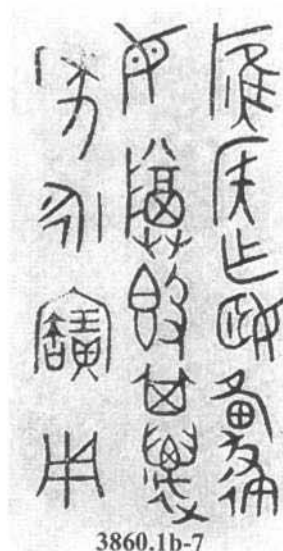 雁侯乍姬邍
母尊𣪘其萬
年永寶用
3860.1b-7